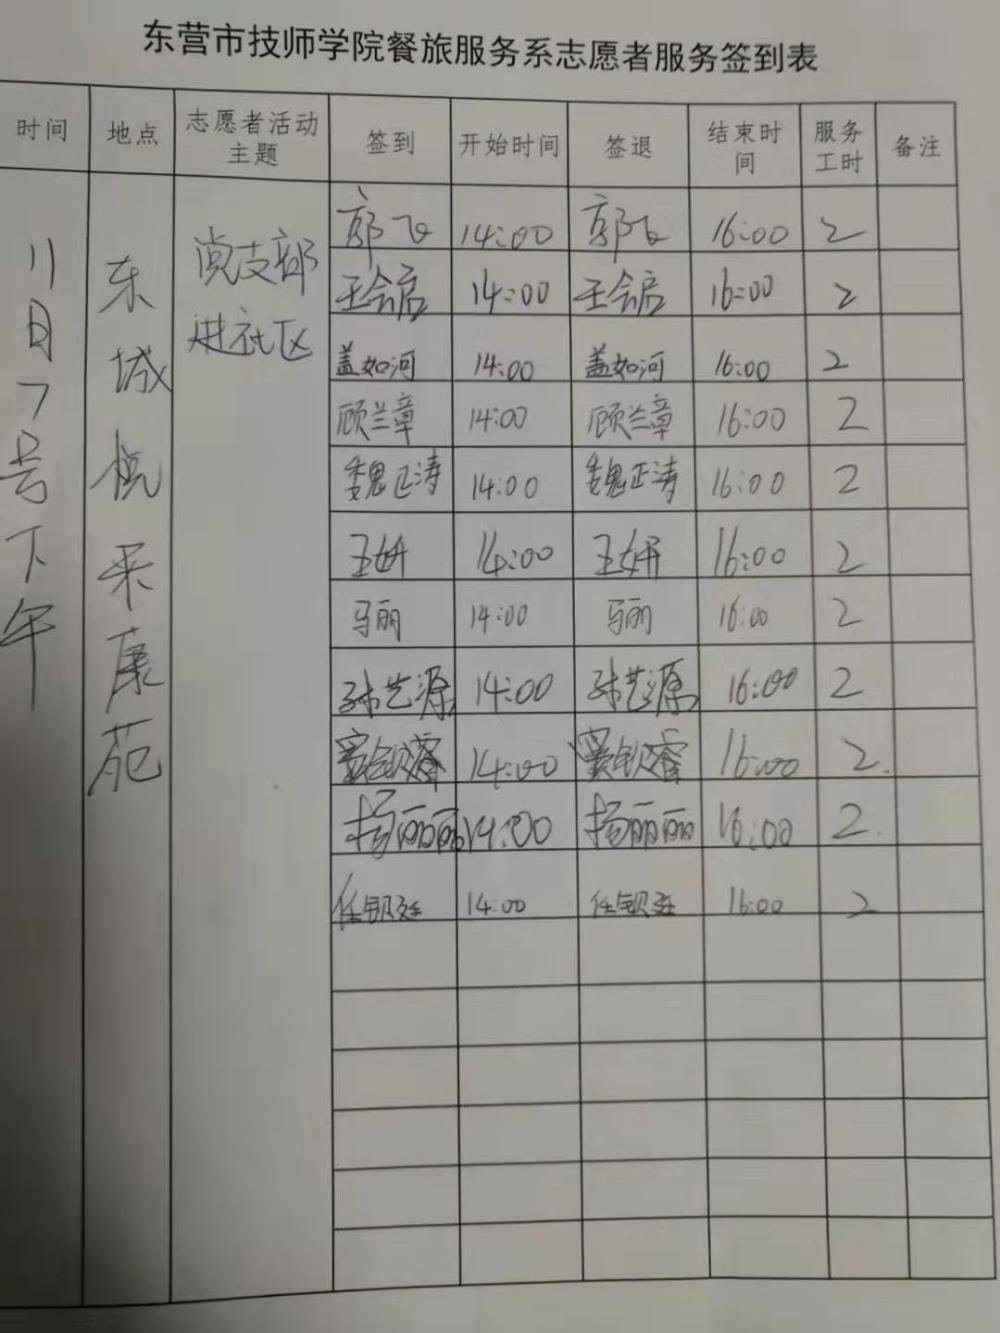 东营市技师学院餐旅服务系志愿者服务签到表
时间 地点 志愿者活动主题 签到 开始时间 签退 结束时间 服务工时 备注
11月7号下午
东城 采康苑
党支部
进社区
郭飞 14:00 郭飞 16:00 2
王会启 14:00 王会启 16:00 2
盖如河 14:00 盖如河 16:00 2
顾兰章 14:00 顾兰章 16:00 2
魏正涛 14:00 魏正涛 16:00 2
王妍 14:00 王妍 16:00 2
马丽 14:00 马丽 16:00 2
张艺源 14:00 张艺源 16:00 2
14:00 16:00 2
杨丽丽 14:00 杨丽丽 16:00 2
14:00 16:00 2